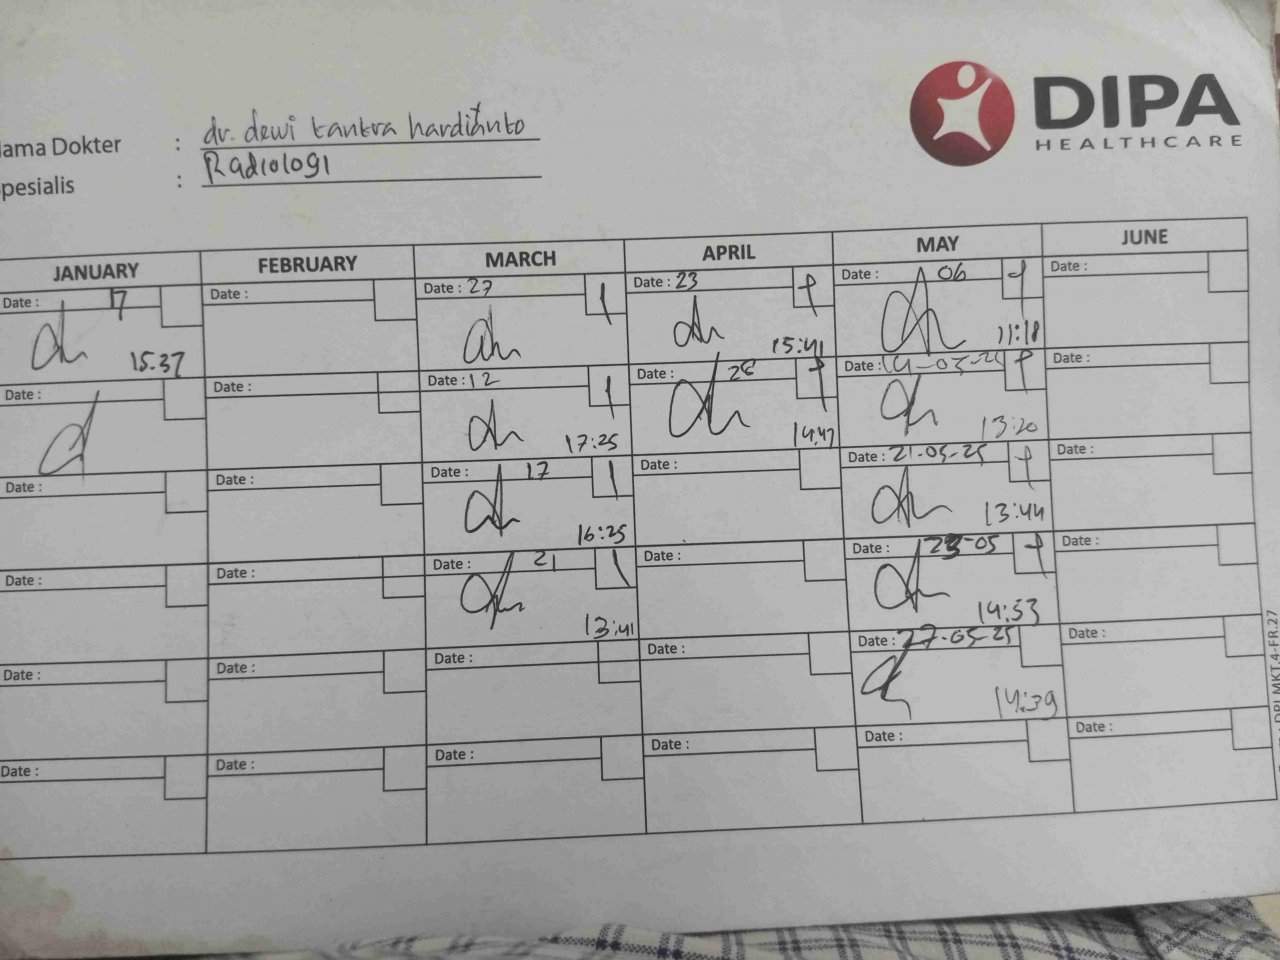 DIPA
HEALTHCARE
ama Dokter : dr. dewi tantra hardianto
pesialis : Radiologi
JANUARY FEBRUARY MARCH APRIL MAY JUNE
Date : 17 Date : Date : 27 Date : 23 Date : 06 Date :
15.37 15:41 11:18
Date : Date : Date : 12 Date : 28 Date : 14-05-25 Date :
17:25 14.47 13:20
Date : Date : Date : 17 Date : Date : 21-05-25 Date :
16:25 13:44
Date : Date : Date : 21 Date : Date : 23-05 Date :
13:41 14:53
Date : Date : Date : Date : Date : 27-05-25 Date :
14:39
Date : Date : Date : Date : Date : Date :